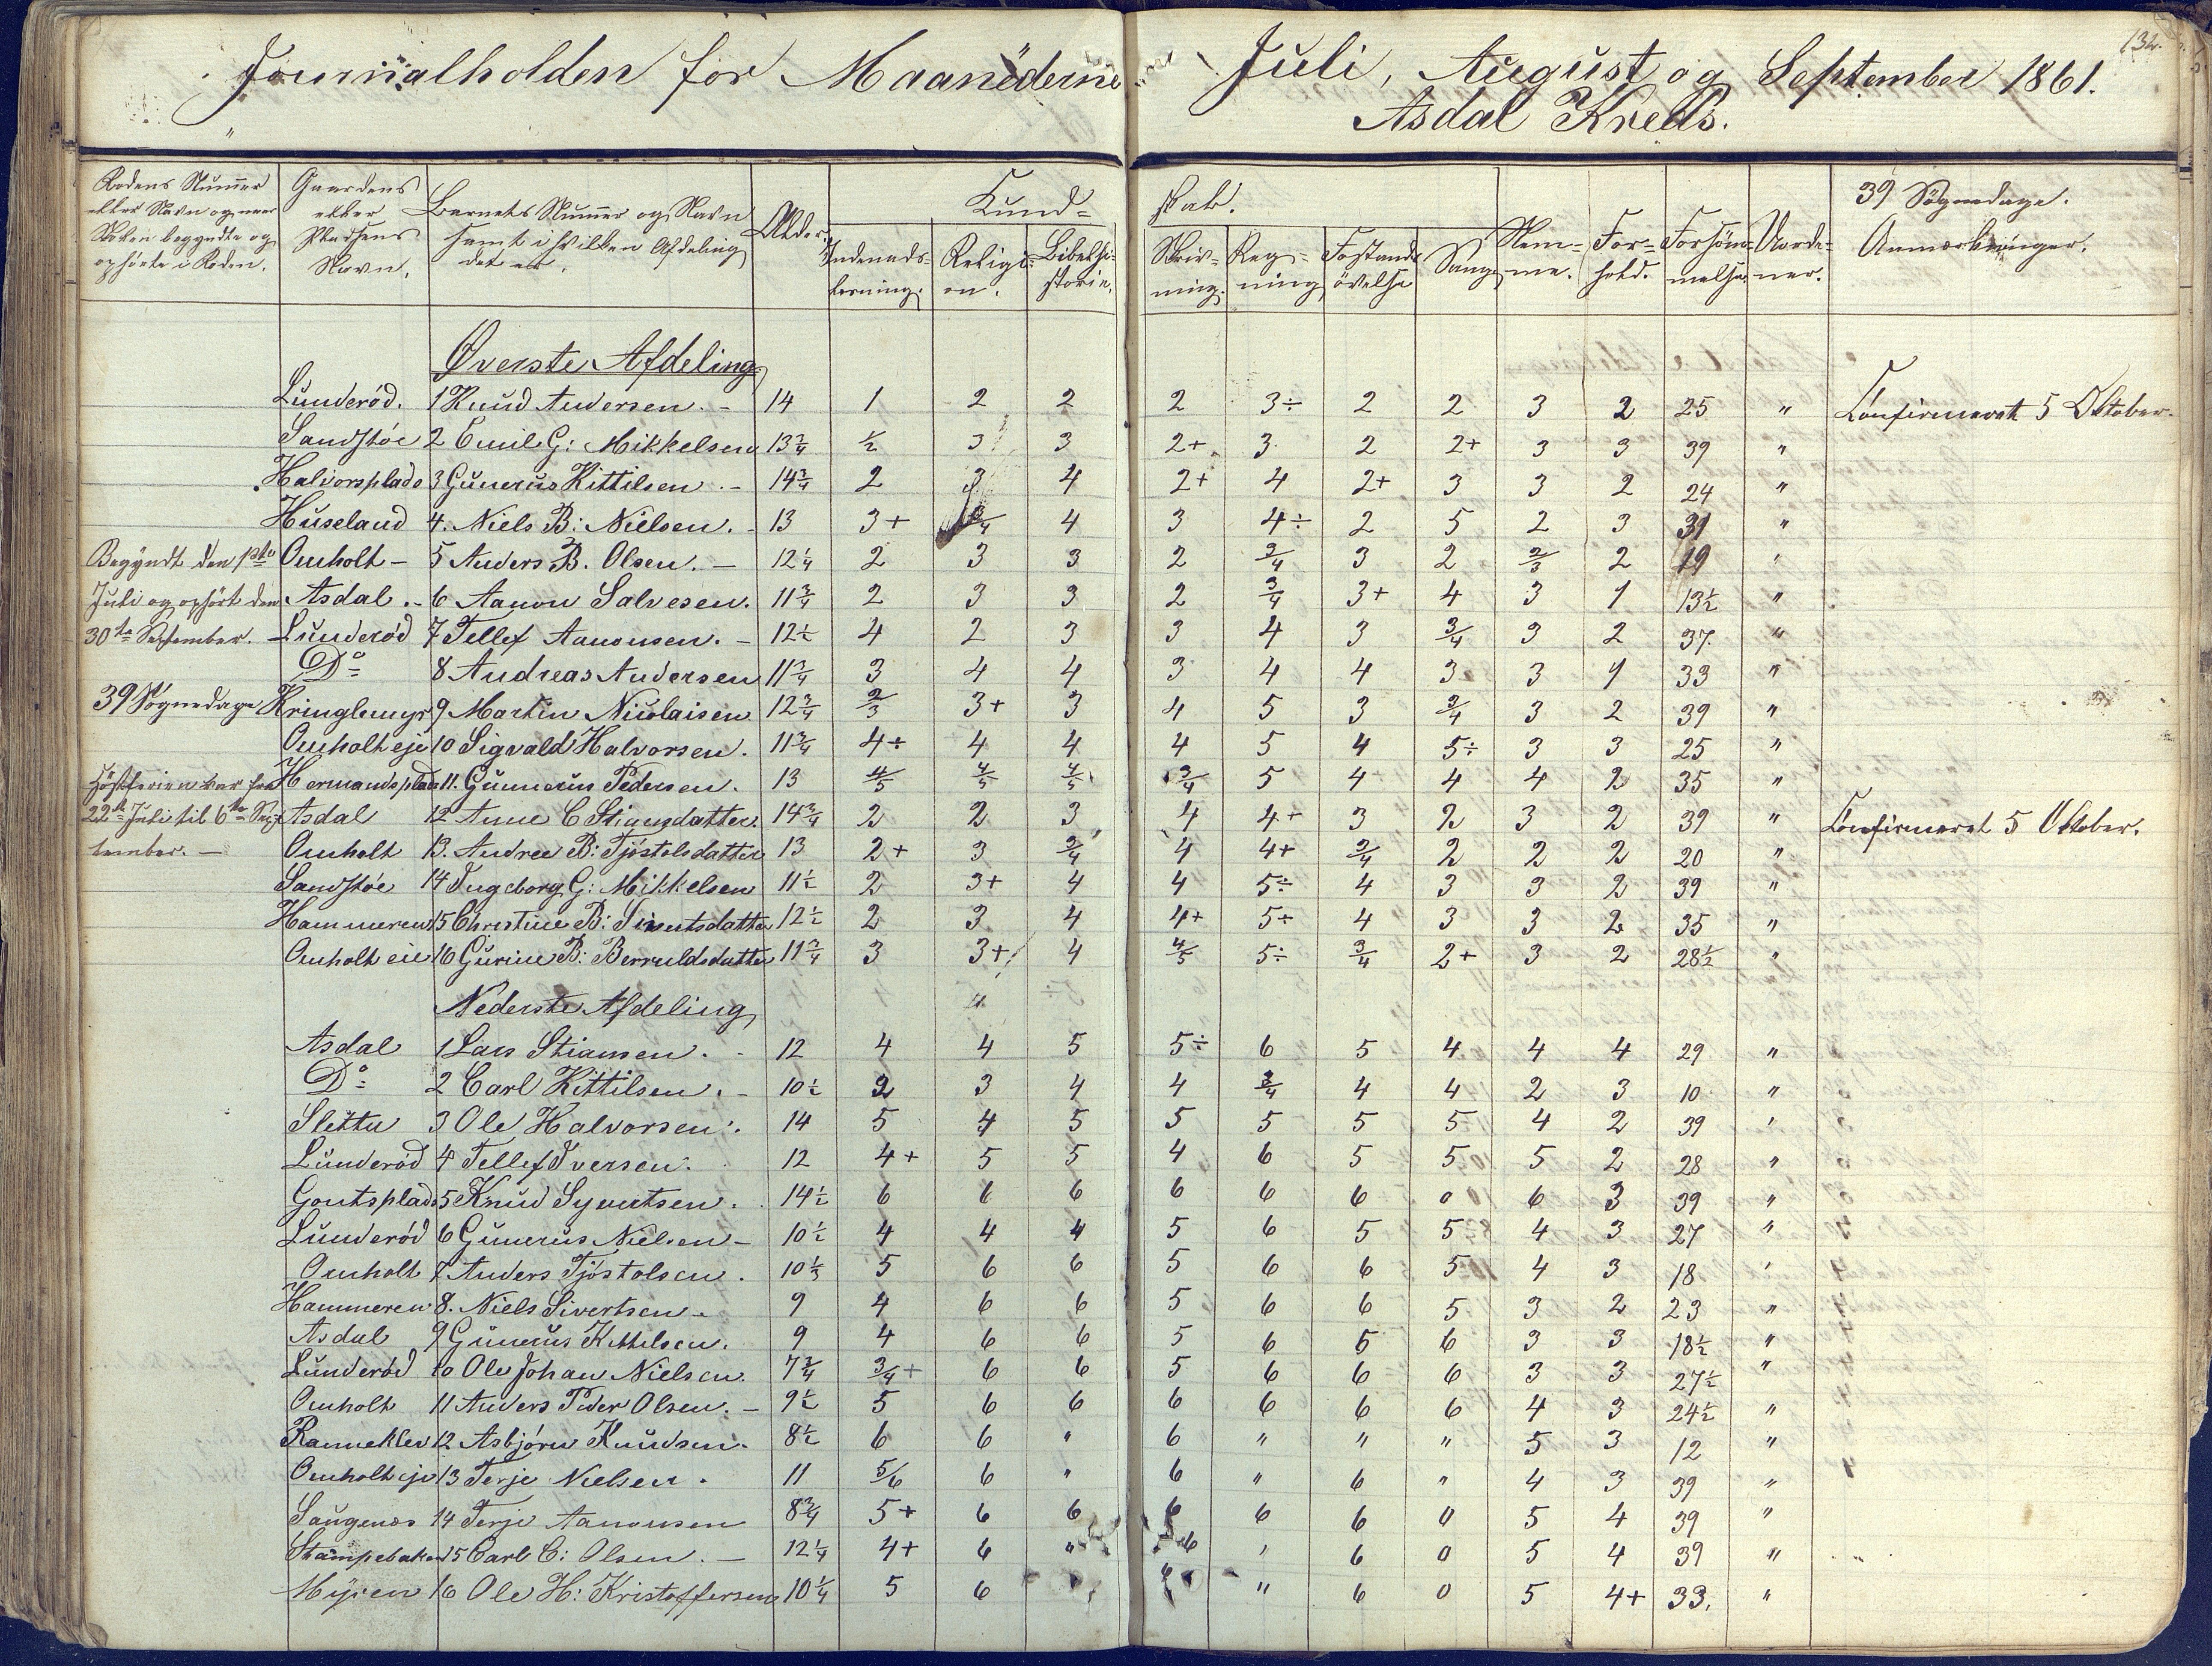 132.
Journalholden for Maanederne Juli, August og September 1861.
Asdal Kreds.
Rodens Nummer eller Navn og naar Skolen begyndte og ophörte i Roden. Gaardens eller Pladsens Navn. Barnets Nummer og Navn samt i hvilken Afdeling det er. Alder. Kundskab. 39 Sögnedage.
Indenadslæsning. Religion. Bibelhistorie. Skrivning. Regning Forstandsövelse Sang Nemme. Forhold. Forsömmelse. Anmærkninger.
Øverste Afdeling
Lunderöd. 1 Knud Andersen. - 14 1 2 2 2 3÷ 2 2 3 2 25 " Confirmeret 5 Oktober.
Sandstöe 2 Emil G: Mikkelsen 13 3/4 1/2 3 3 2+ 3. 2 2+ 3 3 39 "
Halvorsplads 3 Gunerus Kittilsen. - 14 3/4 2 3 4 2+ 4 2+ 3 3 2 24 "
Huseland 4. Niels B: Nielsen. - 13 3+ 3/4 4 3 4÷ 2 5 2 3 39 "
Begyndt den 1ste Omholt - 5 Anders B. Olsen. - 12 1/4 2 3 3 2 3/4 3 2 2/3 2 19 "
Juli og ophört den Asdal. - 6 Aanon Salvesen. 11 3/4 2 3 3 2 3/4 3+ 4 3 1 13 1/2 "
30te September. Lunderöd 7 Tellef Aanonsen. - 12 1/2 4 2 3 3 4 3 3/4 3 2 37. "
Do 8 Andreas Andersen 11 3/4 3 4 4 3 4 4 3 3 1 33 "
39 Sögnedage Kringlemyr 9 Martin Nicolaisen 12 3/4 2/3 3+ 3 4 5 3 3/4 3 2 39 "
Omholt eje 10 Sigvald Halvorsen. 11 3/4 4÷ 4 4 4 5 4 5÷ 3 3 25 "
Höstferien var fra Hermandsplads 11. Gunnerus Pedersen. 13 4/5 4/5 4/5 3/4 5 4 4 4 2 35 "
22de Juli til 6te Sep- Asdal 12 Anne C Stiansdatter 14 3/4 2 2 3 4 4+ 3 2 3 2 39 " Confirmeret 5 Oktober.
tember. - Omholt 13. Andrea B: Tjöstolsdatter 13 2+ 3 3/4 4 4+ 3/4 2 2 2 20 "
Sandstöe 14 Ingeborg G: Mikkelsen 11 1/2 2 3+ 4 4 5÷ 4 3 3 2 39 "
Hammeren 15 Christine B: Sivertsdatter 12 1/2 2 3 4 4+ 5÷ 4 3 3 2 35 "
Omholt eie 16 Gurine B: Berruldsdatter 11 3/4 3 3+ 4 4/5 5÷ 3/4 2+ 3 2 28 1/2 "
Nederste Afdeling
Asdal 1 Lars Stiansen. 12 4 4 5 5÷ 6 5 4 4 4 29 "
Do 2 Carl Kittilsen. - 10 1/2 2 3 4 4 3/4 4 4 2 3 10 "
Sletta 3 Ole Halvorsen. 14 5 4 5 5 5 5 5 4 2 39 "
Lunderöd 4 Tellef Iversen. 12 4+ 5 5 4 6 5 5 5 2 28 "
Gontsplads 5 Knud Syvertsen. 14 1/2 6 6 6 6 6 6 0 6 3 39 "
Lunderöd 6 Gunerus Nielsen - 10 1/2 4 4 4 5 6 5 5 4 3 27 "
Omholt 7 Anders Tjöstolsen. 10 1/3 5 6 6 5 6 6 5 4 3 18 "
Hammeren 8. Niels Sivertsen. 9 4 6 6 5 6 6 5 3 2 23 "
Asdal 9 Gunerus Kittilsen. 9 4 6 6 5 6 5 6 3 3 18 1/2 "
Lunderöd 10 Ole Johan Nielsen 7 3/4 3/4+ 6 6 5 6 6 6 3 3 27 1/2 "
Omholt 11 Anders Peder Olsen. - 9 1/2 5 6 6 6 6 6 6 4 3 24 1/2 "
Ramneklev 12 Asbjörn Knudsen. 8 1/2 6 6 " 6 " " " 5 3 12 "
Omholt eje 13 Terje Nielsen. 11 5/6 6 " 6 " 6 " 4 3 39 "
Saugenes 14 Terje Aanonsen 8 3/4 5+ 6 6 6 6 6 0 5 4 39 "
Stampebaken 15 Carl C: Olsen. - 12 1/4 4+ 6 " 6 " 6 0 5 4 39 "
Myren 16 Ole H: Kristoffersen 10 1/4 5 6 " 6 0 5 4+ 33. "